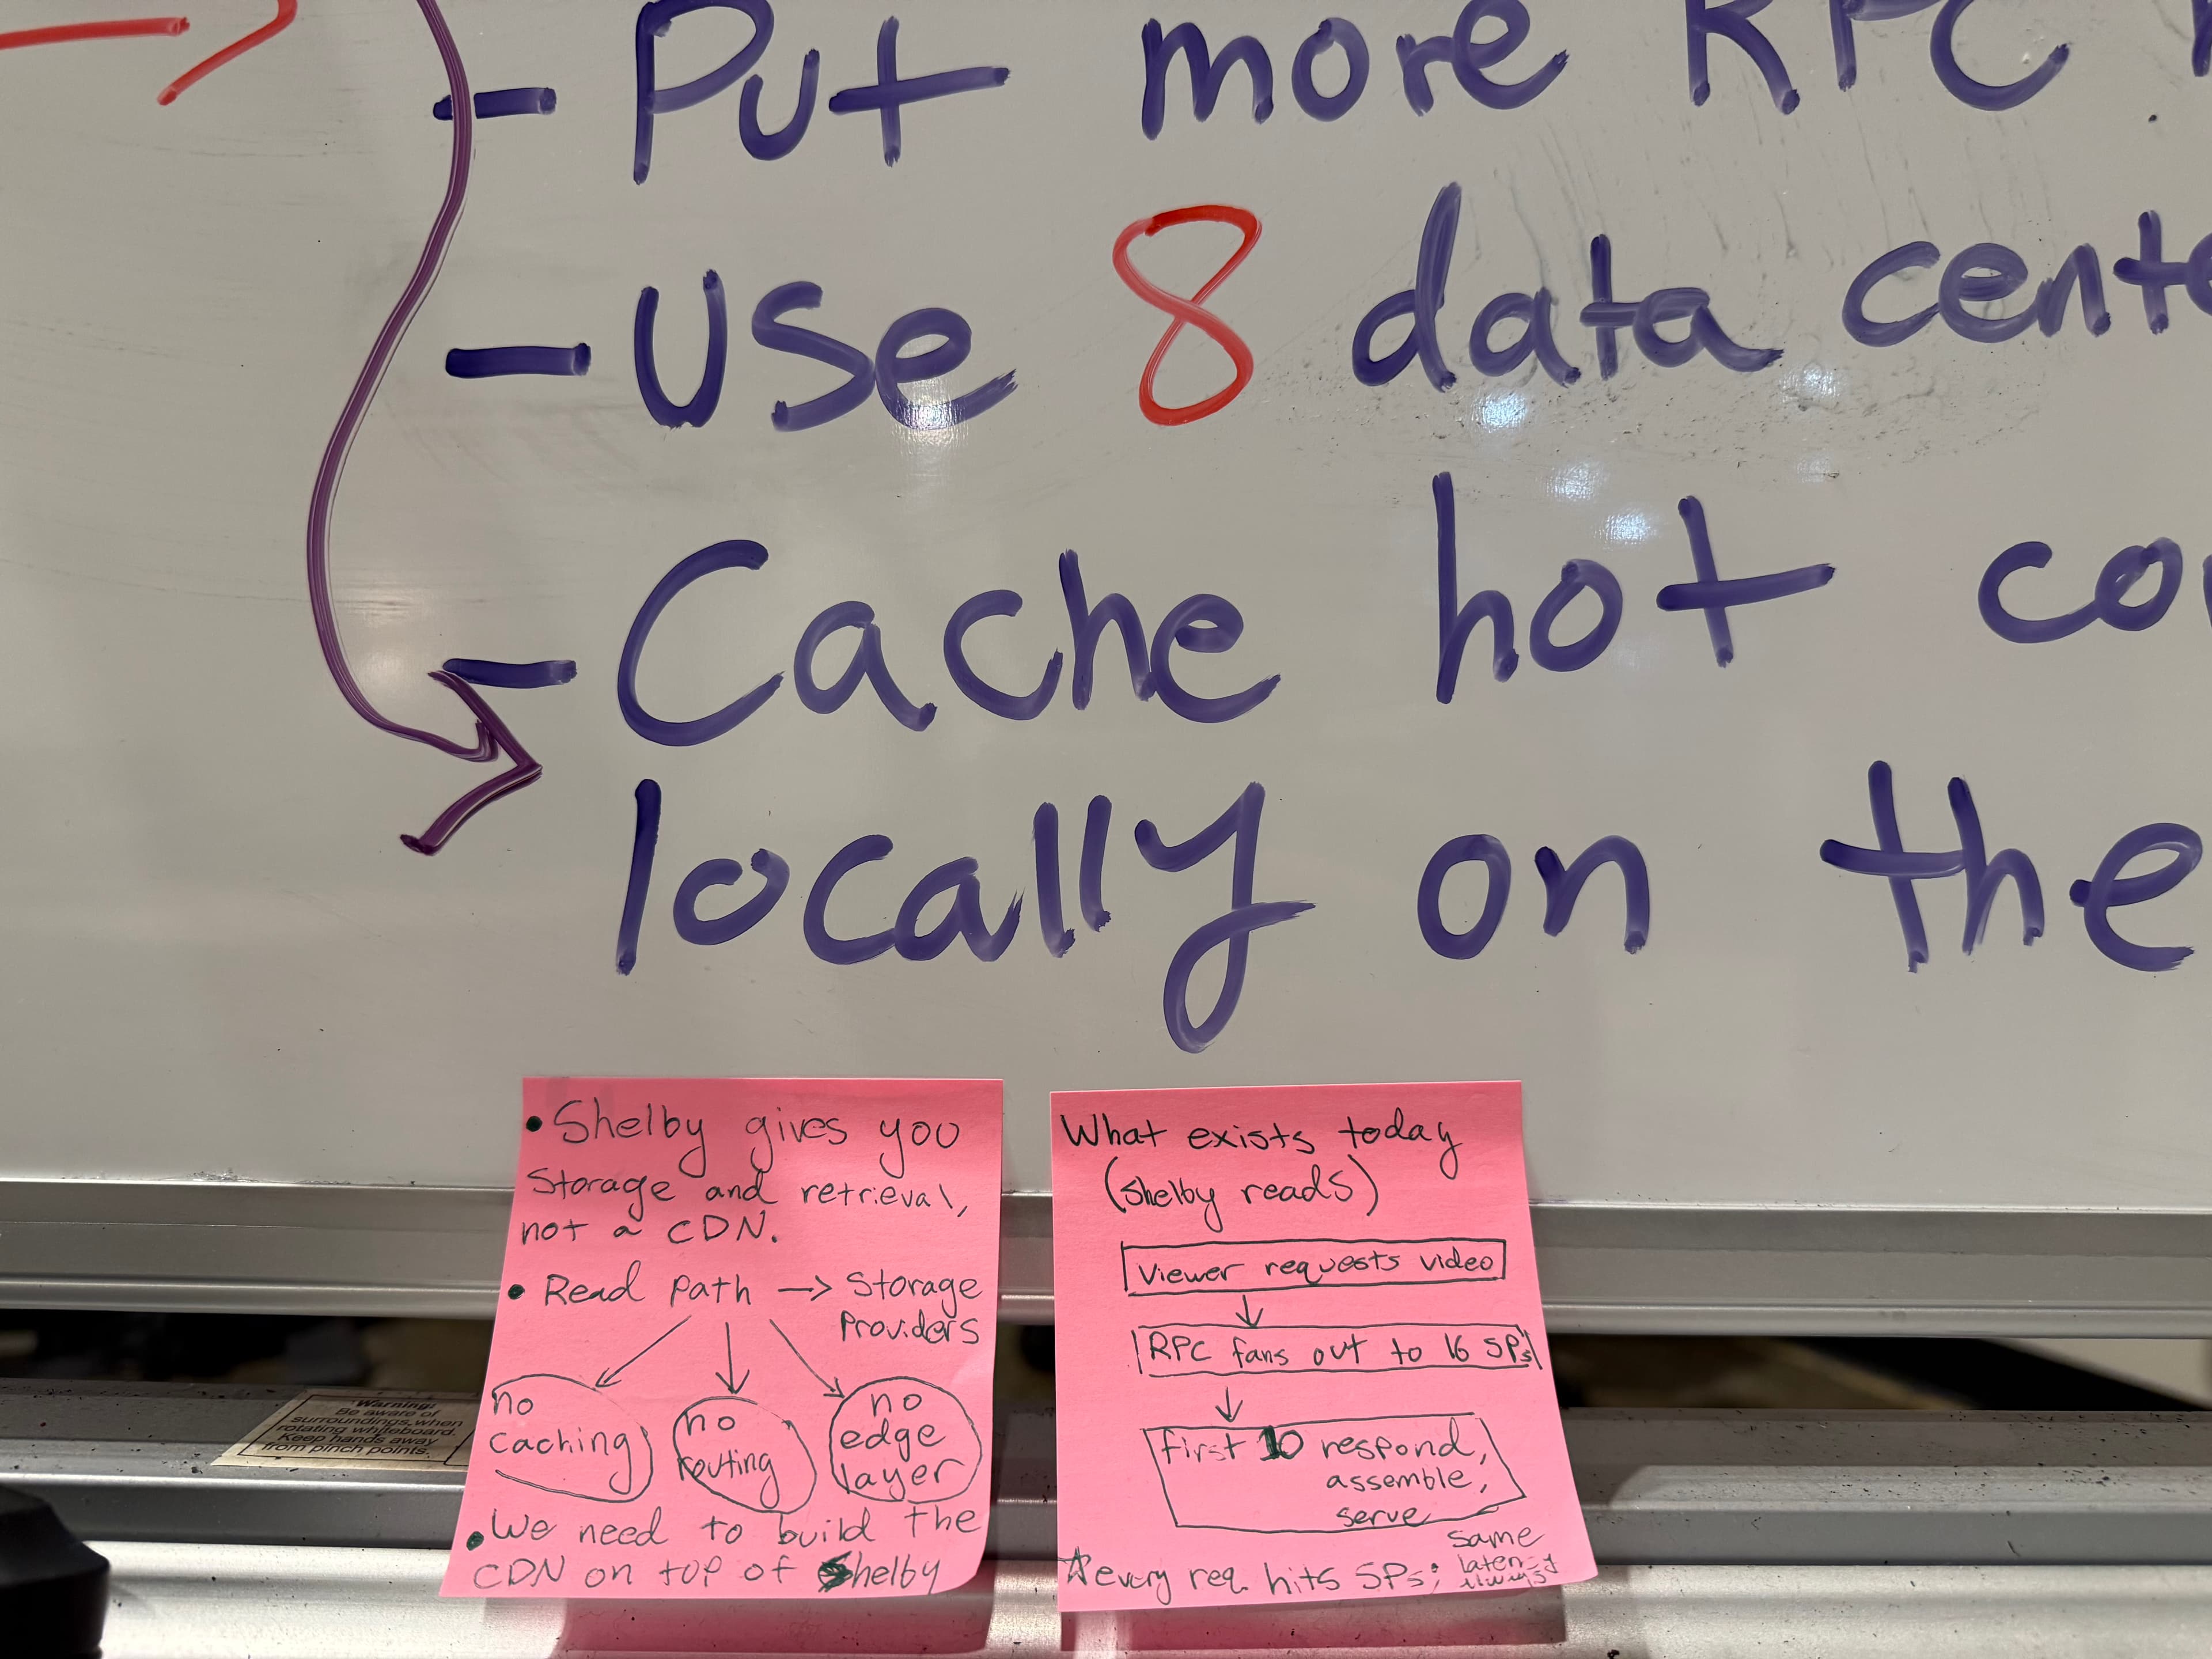 - Put more RPC
- Use 8 data cente
- Cache hot co
locally on the
• Shelby gives you
Storage and retrieval,
not a CDN.
• Read path → Storage
Providers
no
caching
no
routing
no
edge
layer
• We need to build the
CDN on top of Shelby
What exists today
(Shelby reads)
Viewer requests video
RPC fans out to 16 SP's
first 10 respond,
assemble,
serve
☆ every req. hits SPs; same
latency
always
Warning:
Be aware of
surroundings when
rotating whiteboard.
Keep hands away
from pinch points.